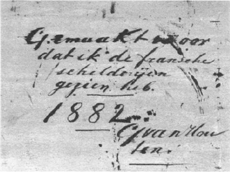 Gemaakt voor
dat ik de fransche
schilderijen
gezien heb.
1882.
G van Hou
ten.